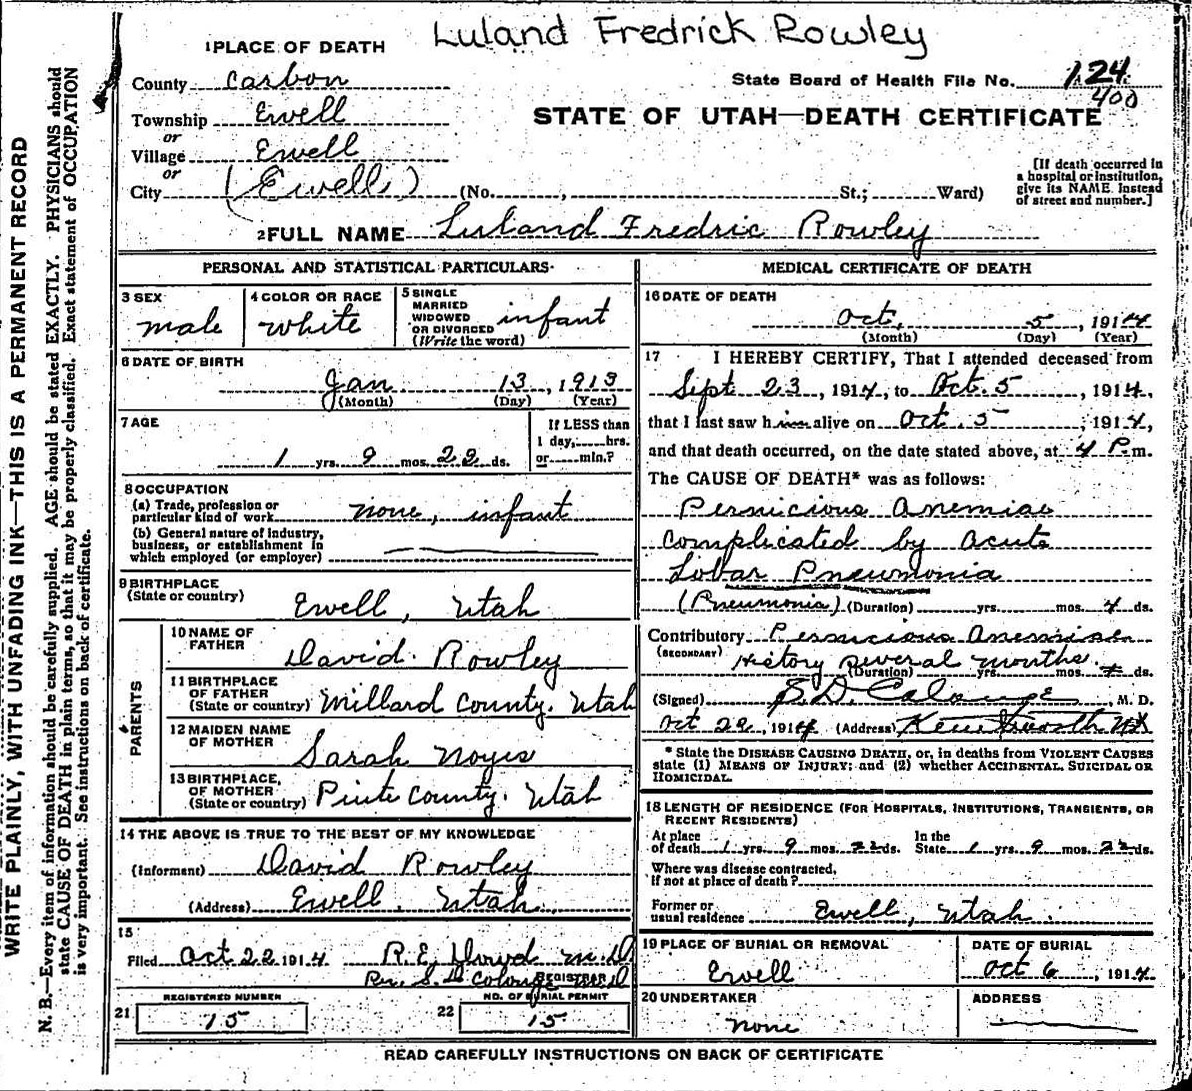 Luland Fredrick Rowley
1 PLACE OF DEATH
County Carbon
State Board of Health File No. 124
400
Township Ewell
STATE OF UTAH—DEATH CERTIFICATE
or
Village Ewell
or
City (Ewell) (No. , St.; Ward)
[If death occurred in
a hospital or institution,
give its NAME instead
of street and number.]
2 FULL NAME Luland Fredric Rowley
PERSONAL AND STATISTICAL PARTICULARS
3 SEX
male
4 COLOR OR RACE
white
5 SINGLE
MARRIED
WIDOWED
OR DIVORCED
(Write the word)
infant
6 DATE OF BIRTH
Jan 13, 1913
(Month) (Day) (Year)
7 AGE
1 yrs. 9 mos. 22 ds.
If LESS than
1 day, hrs.
or min.?
8 OCCUPATION
(a) Trade, profession or
particular kind of work none, infant
(b) General nature of industry,
business, or establishment in
which employed (or employer)
9 BIRTHPLACE
(State or country)
Ewell, Utah
PARENTS
10 NAME OF
FATHER
David Rowley
11 BIRTHPLACE
OF FATHER
(State or country) Millard County. Utah
12 MAIDEN NAME
OF MOTHER
Sarah Noyes
13 BIRTHPLACE,
OF MOTHER
(State or country) Piute County. Utah
14 THE ABOVE IS TRUE TO THE BEST OF MY KNOWLEDGE
(Informant) David Rowley
(Address) Ewell, Utah
15
Filed Oct 22 1914 R.E. M.D
Per. S. D
REGISTRAR
REGISTERED NUMBER
21 15
NO. OF BURIAL PERMIT
22 15
MEDICAL CERTIFICATE OF DEATH
16 DATE OF DEATH
Oct, 5, 1914
(Month) (Day) (Year)
17 I HEREBY CERTIFY, That I attended deceased from
Sept 23, 1914, to Oct. 5, 1914,
that I last saw him alive on Oct. 5, 1914,
and that death occurred, on the date stated above, at 4 P. m.
The CAUSE OF DEATH* was as follows:
Pernicious Anemiae
complicated by acute
Lobar Pneumonia
(Pneumonia) (Duration) yrs. mos. 4 ds.
Contributory Pernicious
(SECONDARY) History several months.
(Duration) yrs. mos. ds.
(Signed) S. D. M. D.
Oct 22, 1914 (Address)
* State the DISEASE CAUSING DEATH, or, in deaths from VIOLENT CAUSES
state (1) MEANS OF INJURY; and (2) whether ACCIDENTAL, SUICIDAL OR
HOMICIDAL.
18 LENGTH OF RESIDENCE (FOR HOSPITALS, INSTITUTIONS, TRANSIENTS, OR
RECENT RESIDENTS)
At place
of death 1 yrs. 9 mos. 22 ds.
In the
State 1 yrs. 9 mos. 22 ds.
Where was disease contracted,
if not at place of death?
Former or
usual residence Ewell, Utah.
19 PLACE OF BURIAL OR REMOVAL
Ewell
DATE OF BURIAL
Oct 6, 1914
20 UNDERTAKER
none
ADDRESS
READ CAREFULLY INSTRUCTIONS ON BACK OF CERTIFICATE
WRITE PLAINLY, WITH UNFADING INK—THIS IS A PERMANENT RECORD
N. B.—Every item of information should be carefully supplied. AGE should be stated EXACTLY. PHYSICIANS should
state CAUSE OF DEATH in plain terms, so that it may be properly classified. Exact statement of OCCUPATION
is very important. See instructions on back of certificate.